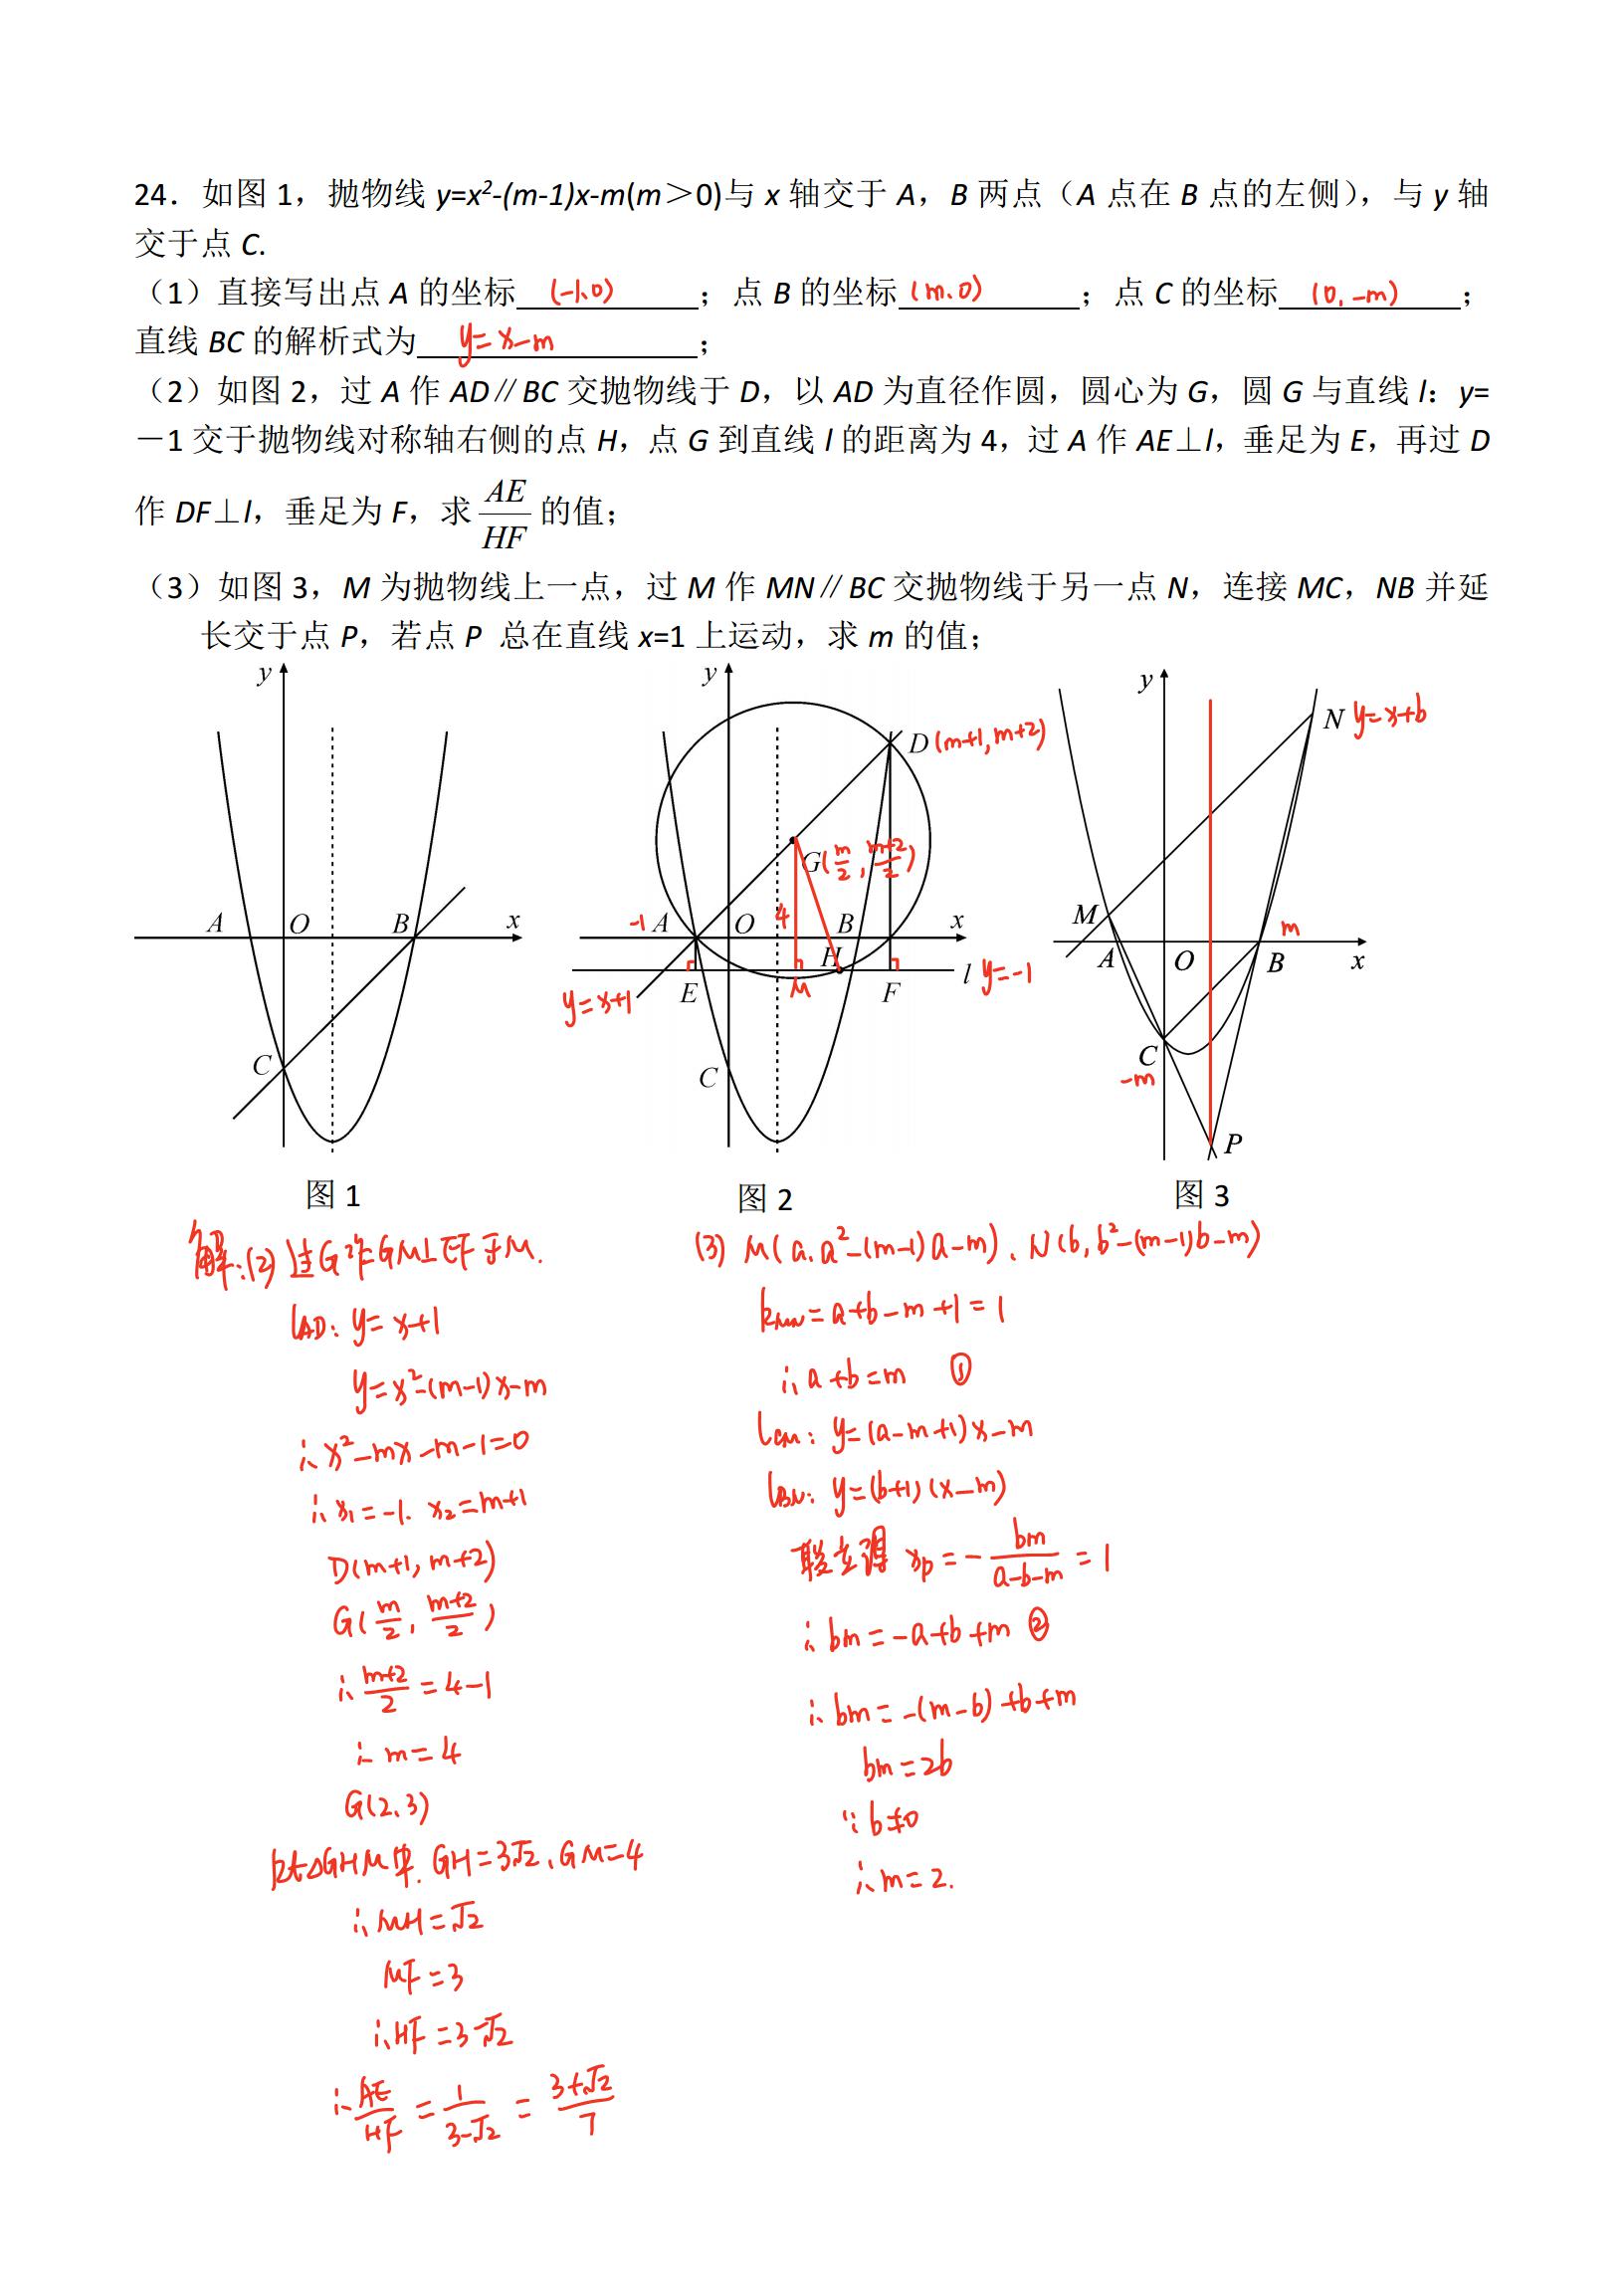 24．如图 1，抛物线 y=x²-(m-1)x-m(m＞0)与 x 轴交于 A，B 两点（A 点在 B 点的左侧），与 y 轴
交于点 C.
（1）直接写出点 A 的坐标 (-1.0) ；点 B 的坐标 (m.0) ；点 C 的坐标 (0, -m) ；
直线 BC 的解析式为 y=x-m ；
（2）如图 2，过 A 作 AD∥BC 交抛物线于 D，以 AD 为直径作圆，圆心为 G，圆 G 与直线 l：y=
－1 交于抛物线对称轴右侧的点 H，点 G 到直线 l 的距离为 4，过 A 作 AE⊥l，垂足为 E，再过 D
作 DF⊥l，垂足为 F，求 AE/HF 的值；
（3）如图 3，M 为抛物线上一点，过 M 作 MN∥BC 交抛物线于另一点 N，连接 MC，NB 并延
长交于点 P，若点 P 总在直线 x=1 上运动，求 m 的值；
y
A O B x
C
图 1
y
D (m+1, m+2)
G (m/2, (m+2)/2)
-1 A O 4 B x
H
l y=-1
y=x+1 E M F
C
图 2
y
N y=x+b
M
m
A O B x
C
-m
P
图 3
解:(2) 过G作GM⊥EF于M.
l_AD: y=x+1
y=x²-(m-1)x-m
∴x²-mx-m-1=0
∴x₁=-1. x₂=m+1
D(m+1, m+2)
G(m/2, (m+2)/2)
∴(m+2)/2=4-1
∴m=4
G(2.3)
Rt△GHM中. GH=3√2、GM=4
∴MH=√2
MF=3
∴HF=3-√2
∴AE/HF=1/(3-√2)=(3+√2)/7
(3) M(a.a²-(m-1)a-m)、N(b,b²-(m-1)b-m)
k_MN=a+b-m+1=1
∴a+b=m ①
l_CM: y=(a-m+1)x-m
l_BN: y=(b+1)(x-m)
联立得 x_P=-bm/(a-b-m)=1
∴bm=-a+b+m ②
∴bm=-(m-b)+b+m
bm=2b
∵b≠0
∴m=2.